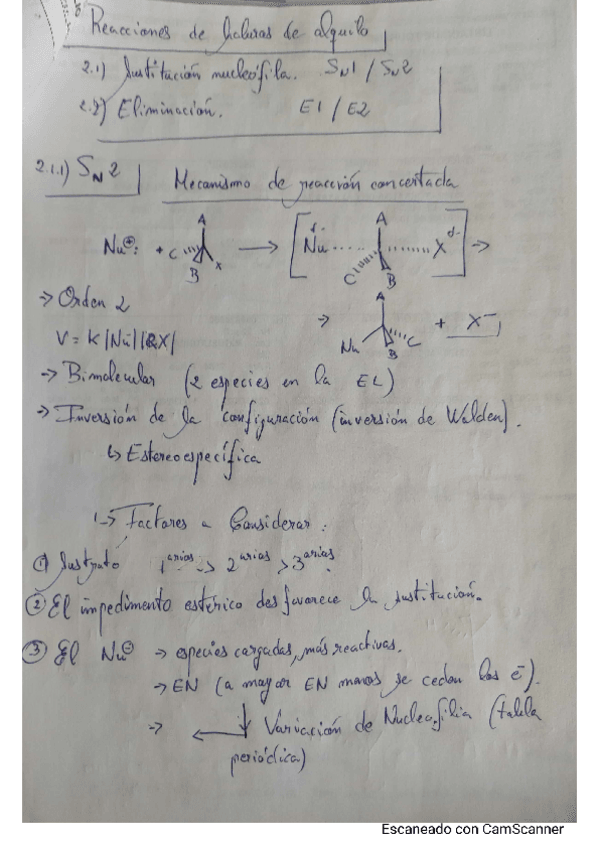 Reacciones de haluros de alquilo
2.1) Sustitución nucleófila. SN1 / SN2
2.2) Eliminación. E1 / E2
2.1.1) SN2 | Mecanismo de reacción concertada
Nu⊖: + C A B x → [Nu δ- ····· A C B ······ X δ-] →
→ Orden 2
→ A Nu B C + X⁻
V = K |Nu| |RX|
→ Bimolecular (2 especies en la EL)
→ Inversión de la configuración (inversión de Walden).
↳ Estereoespecífica
↳ Factores a Considerar:
① Sustrato 1arias > 2arias > 3arias.
② El impedimento estérico desfavorece la sustitución.
③ El Nu⊖ → especies cargadas, más reactivas.
→ EN (a mayor EN menos se ceden los é).
→ ← ↓ Variación de Nucleofilia (tabla
periódica)
Escaneado con CamScanner